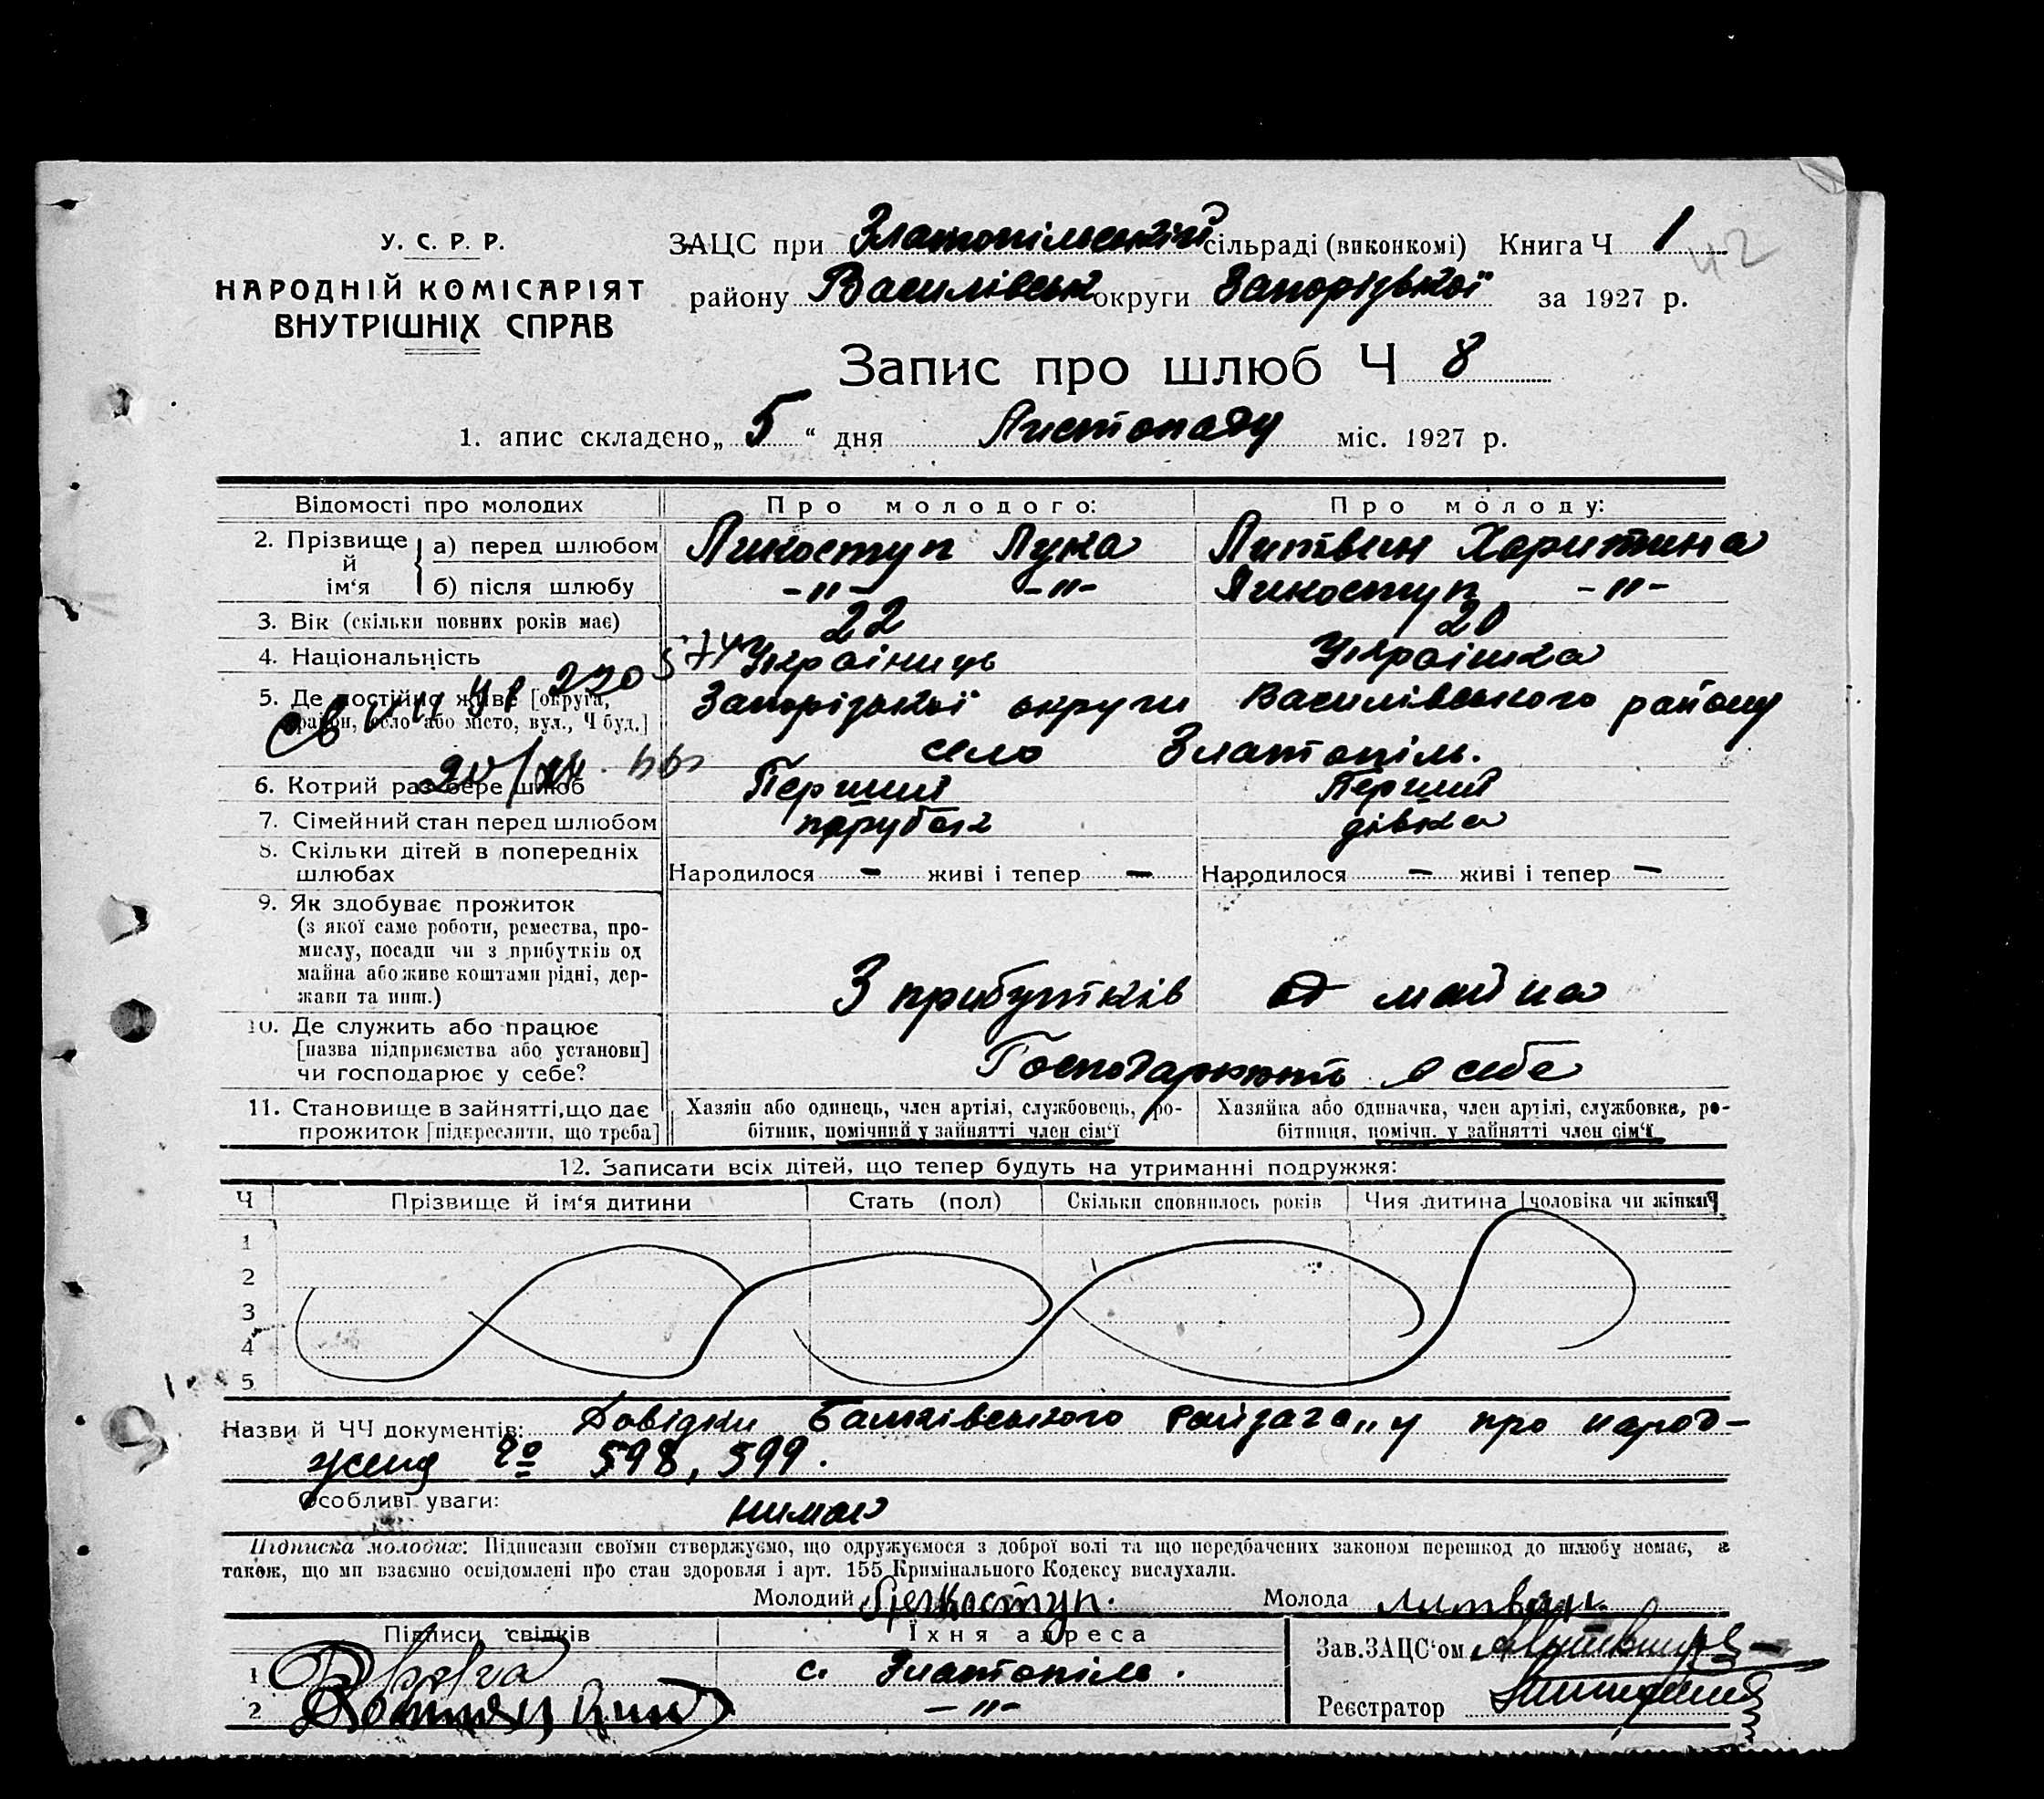 У. С. Р. Р.
НАРОДНІЙ КОМІСАРІЯТ
ВНУТРІШНІХ СПРАВ
ЗАЦС при Златопільській сільраді (виконкомі) Книга Ч 1
42
району Василівськ округи Запорізької за 1927 р.
Запис про шлюб Ч 8
1. апис складено „ 5 “ дня Листопаду міс. 1927 р.
Відомості про молодих Про молодого: Про молоду:
2. Прізвище й ім‘я а) перед шлюбом Ликоступ Лука Литвин Харитина
б) після шлюбу -"- -"- Ликоступ -"-
3. Вік (скільки повних років має) 22 20
4. Національність Українець Українка
5. Де постійно живе [округа, Запорізької округи Василівського району
район, село або місто, вул., Ч буд.] село Златопіль.
6. Котрий раз бере шлюб Перший Перший
7. Сімейний стан перед шлюбом парубок дівка
8. Скільки дітей в попередніх
шлюбах Народилося — живі і тепер — Народилося — живі і тепер —
9. Як здобуває прожиток
(з якої саме роботи, ремества, про-
мислу, посади чи з прибутків од
майна або живе коштами рідні, дер-
жави та инш.) З прибутків от майна
10. Де служить або працює
[назва підприємства або установи]
чи господарює у себе? Господарюють у себе
11. Становище в зайнятті, що дає Хазяїн або одинець, член артілі, службовець, ро- Хазяйка або одиначка, член артілі, службовка, ро-
прожиток [підкреслити, що треба] бітник, помічний у зайнятті член сім‘ї бітниця, помічн. у зайнятті член сім‘ї
12. Записати всіх дітей, що тепер будуть на утриманні подружжя:
Ч Прізвище й ім‘я дитини Стать (пол) Скільки сповнилось років Чия дитина [чоловіка чи жінки]
1
2
3
4
5
Назви й ЧЧ документів: Довідки про народ-
ження 598, 599.
Особливі уваги: нимає
Підписка молодих: Підписами своїми стверджуємо, що одружуємося з доброї волі та що передбачених законом перешкод до шлюбу немає, а
також, що ми взаємно освідомлені про стан здоровля і арт. 155 Кримінального Кодексу вислухали.
Молодий Ликоступ. Молода Литвин.
Підписи свідків Їхня адреса Зав. ЗАЦС‘ом
1 с. Златопіль.
2 -"- Реєстратор